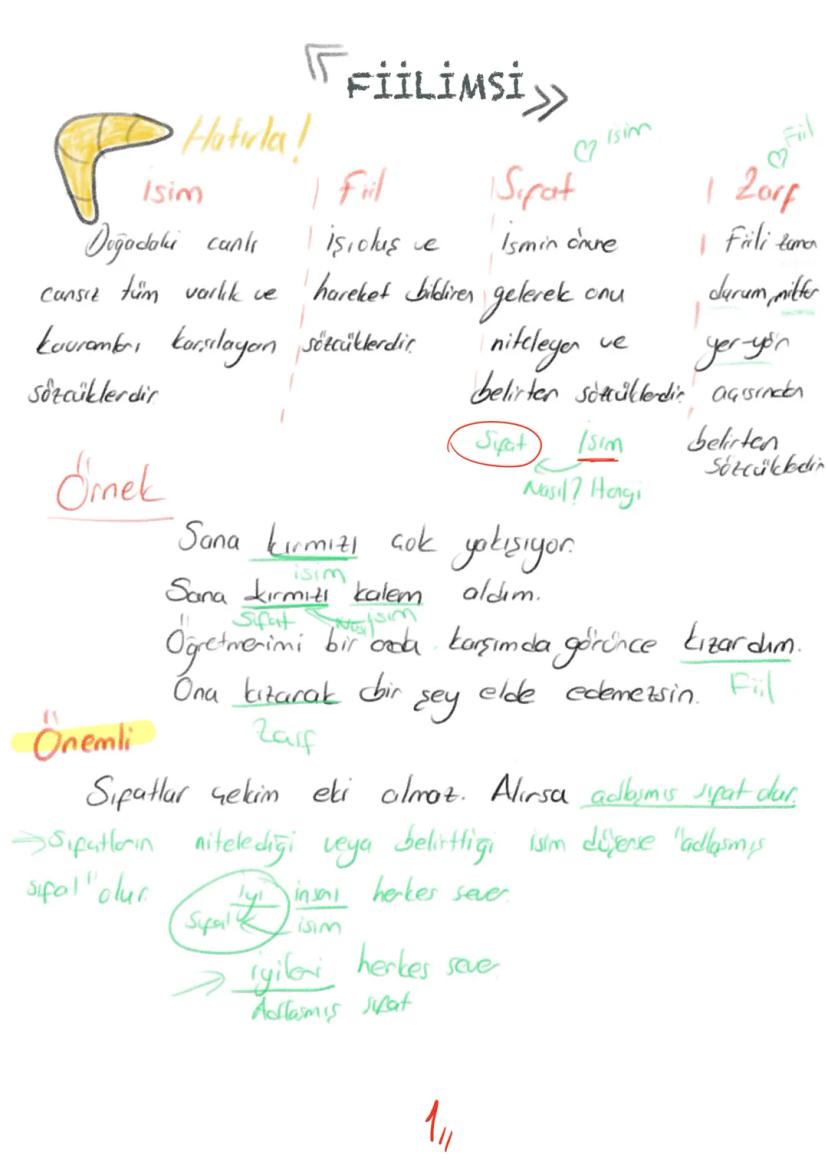 « FİİLİMSİ »
Hatırla!
♡ isim
♡ Fiil
isim | Fiil | Sıfat | Zarf
Doğadaki canlı
cansız tüm varlık ve
kavramları karşılayan
sözcüklerdir
iş, oluş ve
hareket bildiren
sözcüklerdir
İsmin önüne
gelerek onu
niteleyen ve
belirten sözcüklerdir
Sıfat İsim
Nasıl? Hangi
Fiili zaman
durum, miktar
yer-yön
açısından
belirten
sözcüklerdir
Örnek
Sana kırmızı çok yakışıyor.
isim
Sana kırmızı kalem aldım.
Sıfat Nasıl isim
Öğretmenimi bir anda karşımda görünce kızardım.
Fiil
Ona kızarak bir şey elde edemezsin.
Zarf
Önemli
Sıfatlar çekim eki almaz. Alırsa adlaşmış sıfat olur.
→ Sıfatların nitelediği veya belirttiği isim düşerse "adlaşmış
sıfat" olur.
iyi insanı herkes sever.
Sıfat isim
→ iyileri herkes sever
Adlaşmış sıfat
1